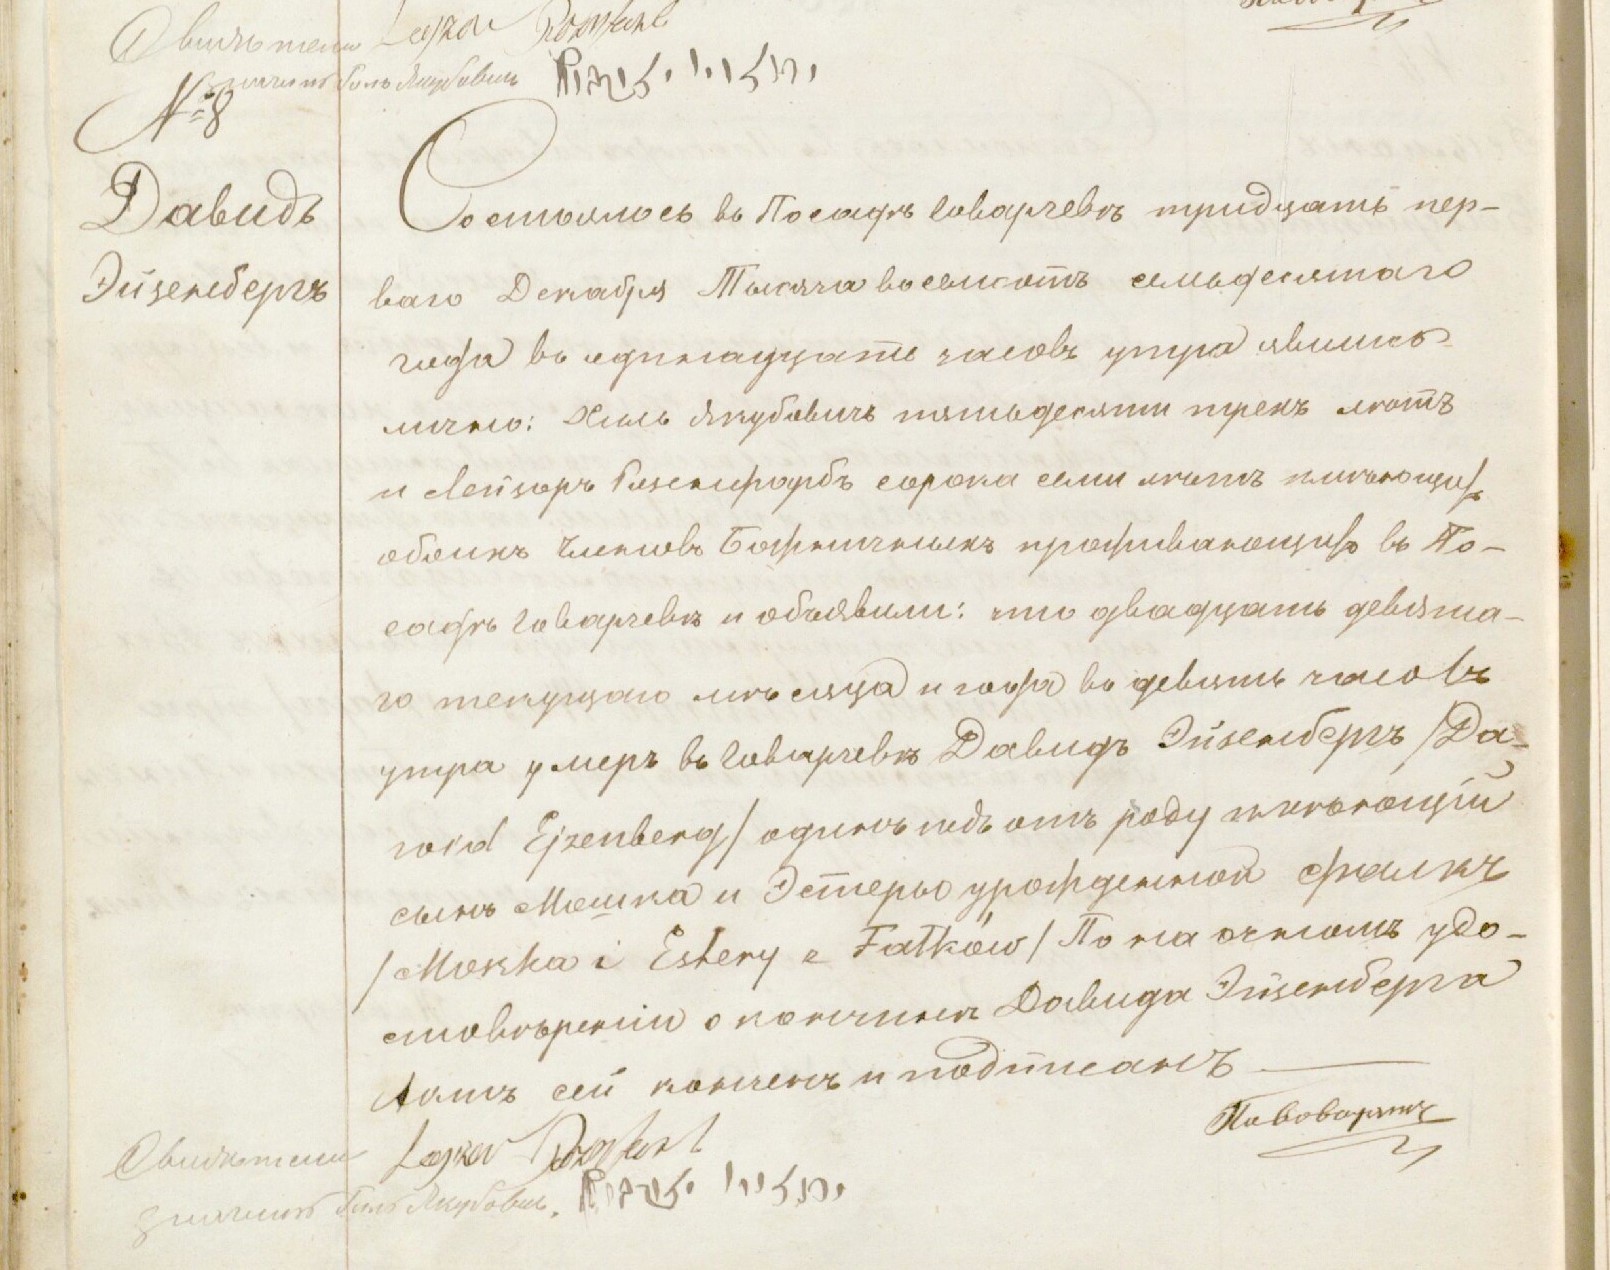 Свидѣтели Lejzor Rozenfarb
значитъ Гиль Якубовичъ
№ 8
Давидъ
Эйзенбергъ
Состоялось въ Посадѣ Говарчевѣ тридцать пер-
ваго Декабря Тысяча восемсотъ семьдесятаго
года въ одинадцать часовъ утра явились
лично: Хиль Якубовичъ пятьдесяти трехъ лѣтъ
и Лейзоръ Розенфарбъ сорока семи лѣтъ
обоихъ Членовъ Божничныхъ проживающихъ въ По-
садѣ Говарчевѣ и объявили: что двадцать девята-
го текущаго мѣсяца и года въ девять часовъ
утра умеръ въ Говарчевѣ Давидъ Эйзенбергъ /Da-
wid Ejzenberg/ одинъ годъ отъ роду имѣющій
сынъ Мошка и Эстеры урожденной Фалкъ
/Moszka i Estery z Fałków/ По на очномъ удо-
стовѣреніи о кончинѣ Давида Эйзенберга
Актъ сей конченъ и подписанъ
Пивоварчикъ
Свидѣтели Lejzor Rozenfarb
значитъ Гиль Якубовичъ.